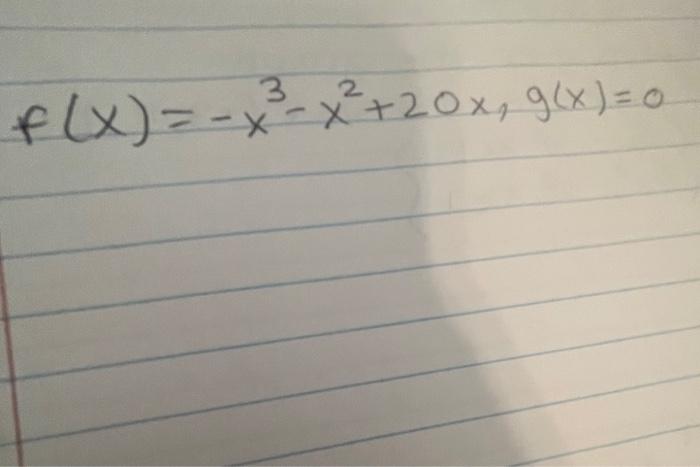 f(x) = -x³ - x² + 20x, g(x) = 0